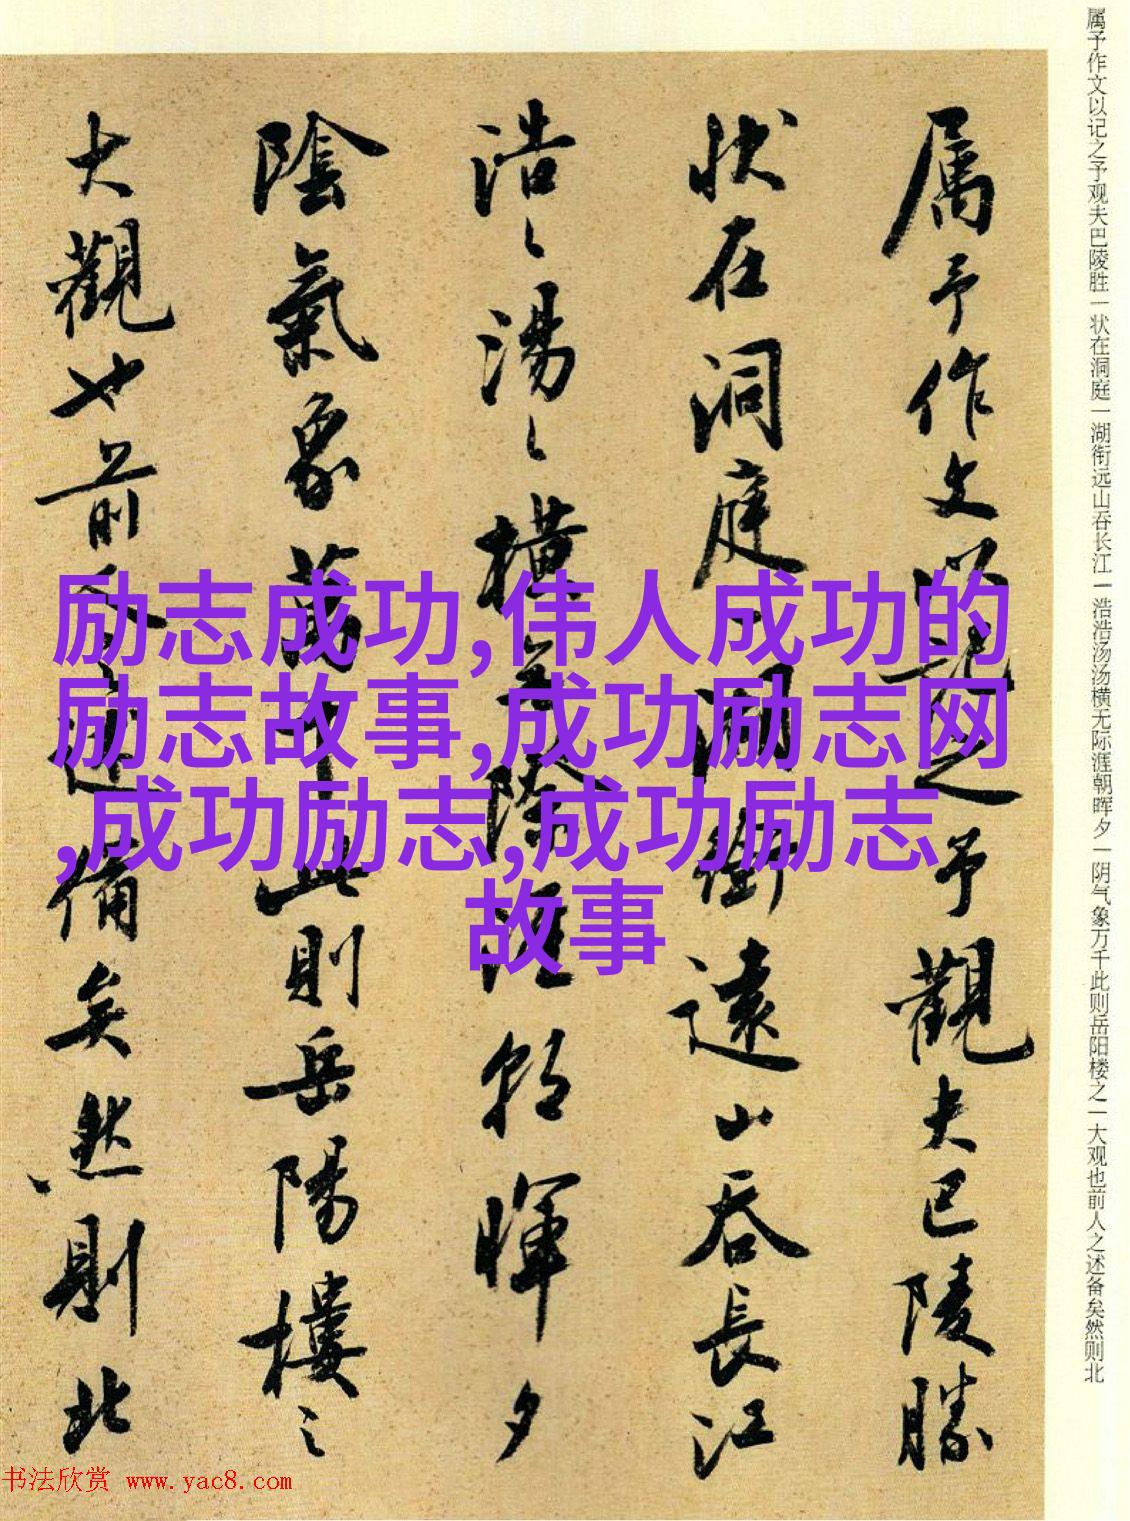 属予作文以记之予观夫巴陵胜一状在洞庭一湖衔远山吞长江一浩浩汤汤横无际涯朝晖夕一阴气象万千此则岳阳楼之一大观也前人之述备矣然则北
属予作文以記之予觀夫巴陵勝
状在洞庭一湖銜遠山吞長江
浩〻湯〻横無際涯朝暉夕
陰氣象萬千此則岳陽樓之
大觀也前人之述備矣然則北
励志成功,伟人成功的
励志故事,成功励志网
,成功励志,成功励志
故事
书法欣赏 www.yac8.com